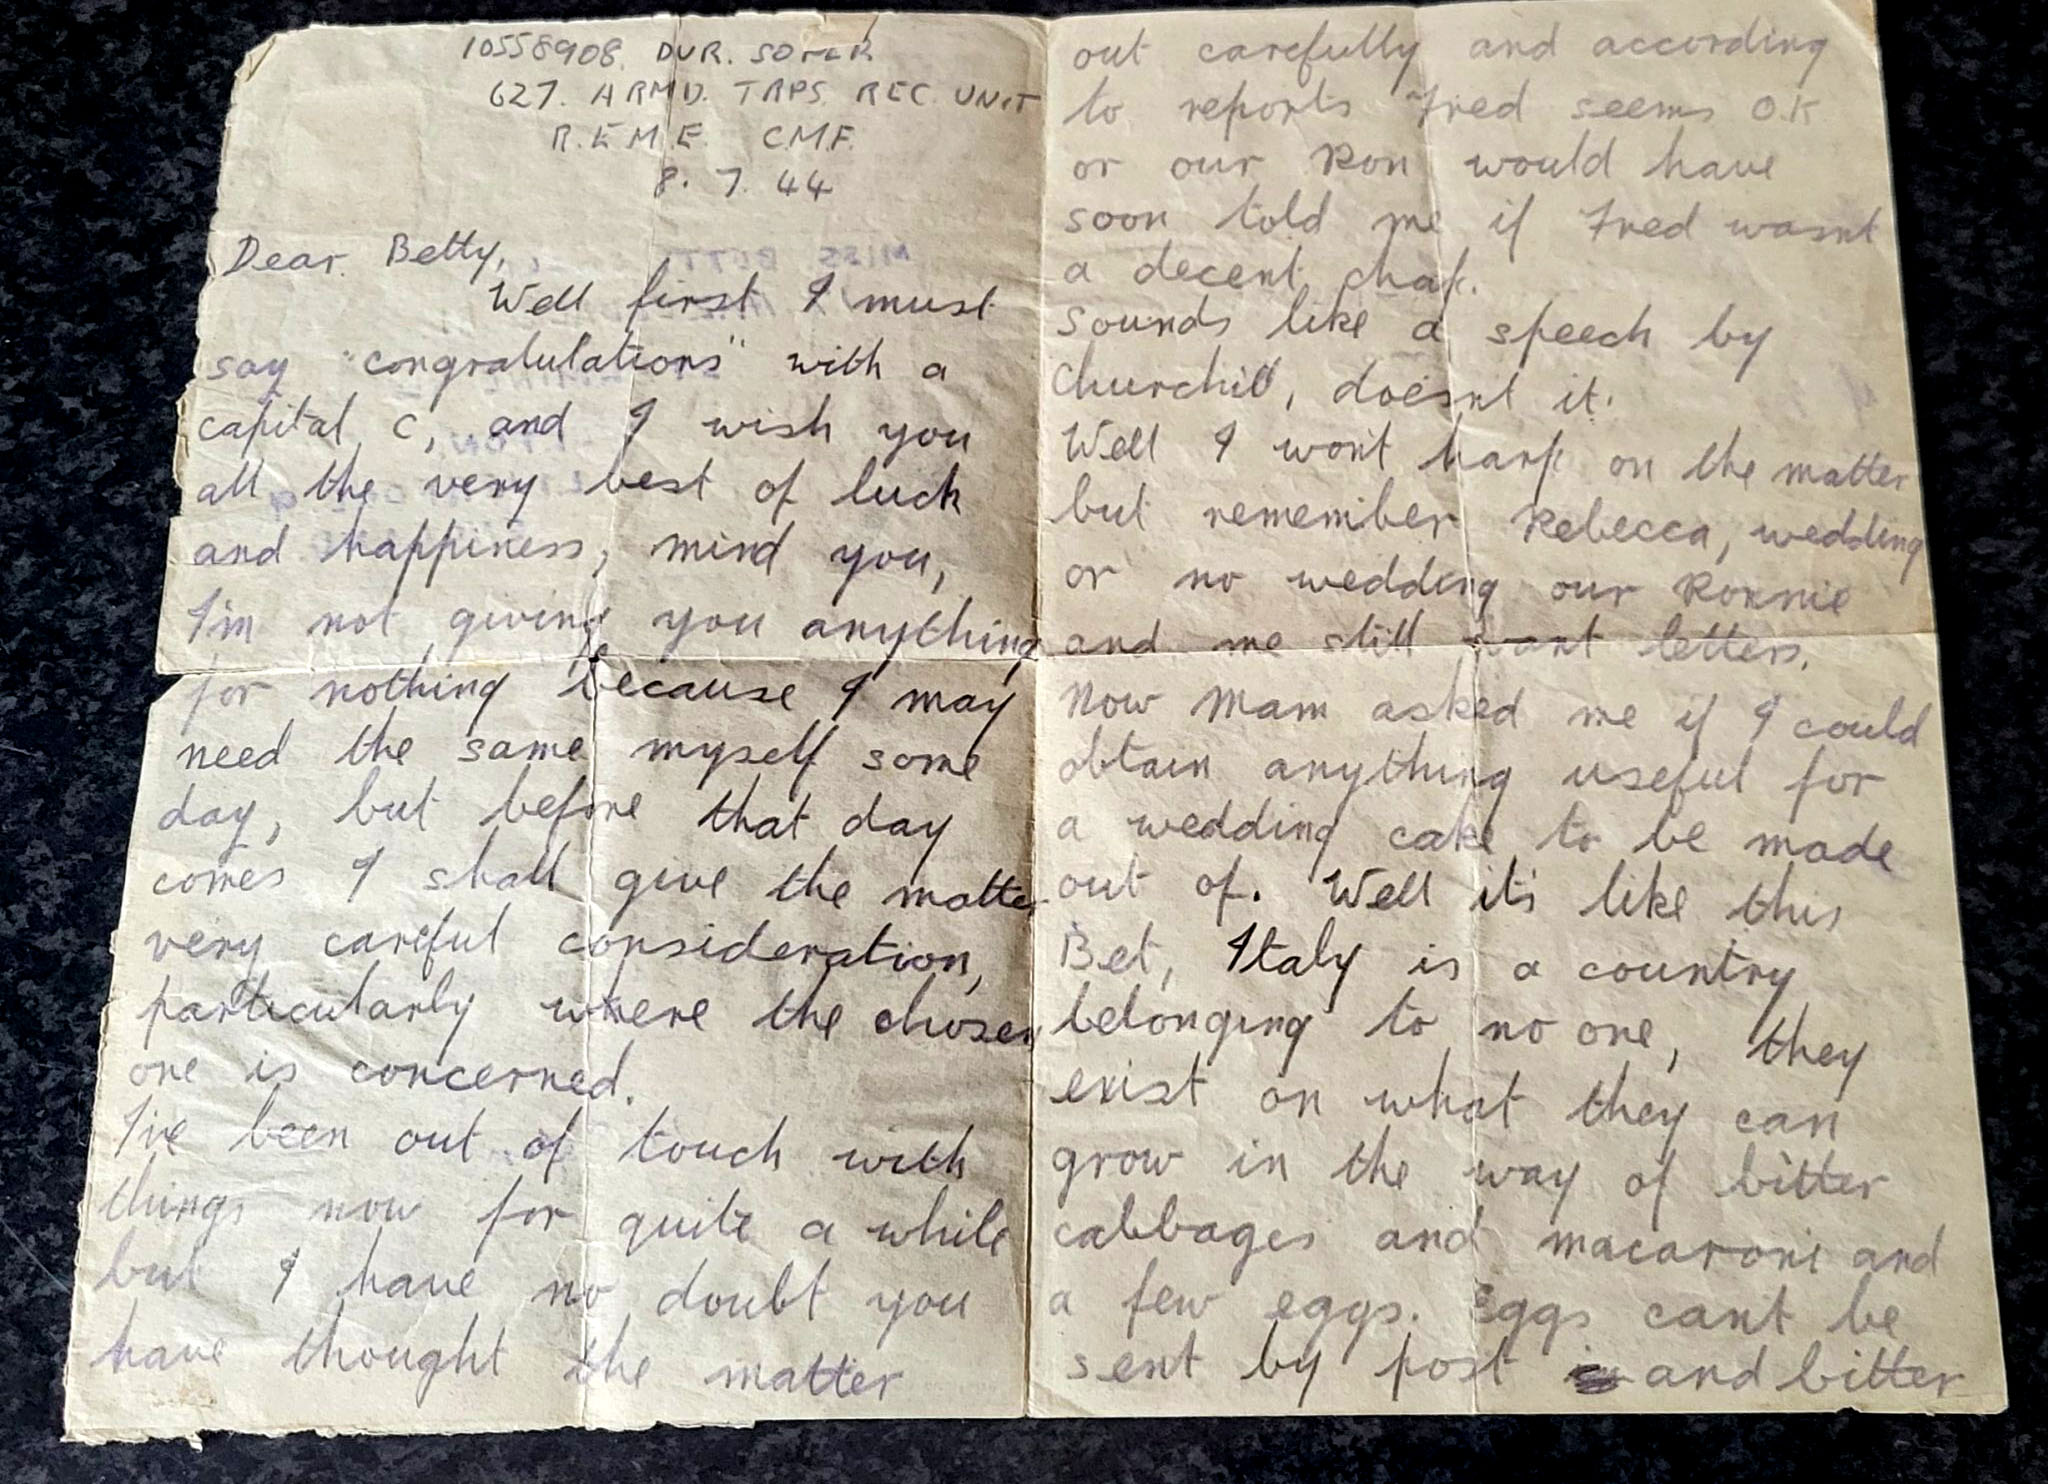 10558908. DVR. SOMER
627. ARMD. TRPS. REC. UNIT
R.E.M.E. C.M.F.
8. 7. 44
Dear Betty,
Well first I must
say "congratulations" with a
capital C, and I wish you
all the very best of luck
and happiness, mind you,
I'm not giving you anything
for nothing because I may
need the same myself some
day, but before that day
comes I shall give the matter
very careful consideration,
particularly where the chosen
one is concerned.
I've been out of touch with
things now for quite a while
but I have no doubt you
have thought the matter
out carefully and according
to reports Fred seems O.K
or our Ron would have
soon told me if Fred wasnt
a decent chap.
Sounds like a speech by
Churchill, doesnt it.
Well I won't harp on the matter
but remember Rebecca, wedding
or no wedding our Ronnie
and me still want letters.
Now Mam asked me if I could
obtain anything useful for
a wedding cake to be made
out of. Well it's like this
Bet, Italy is a country
belonging to no one, they
exist on what they can
grow in the way of bitter
cabbages and macaroni and
a few eggs. Eggs can't be
sent by post and bitter